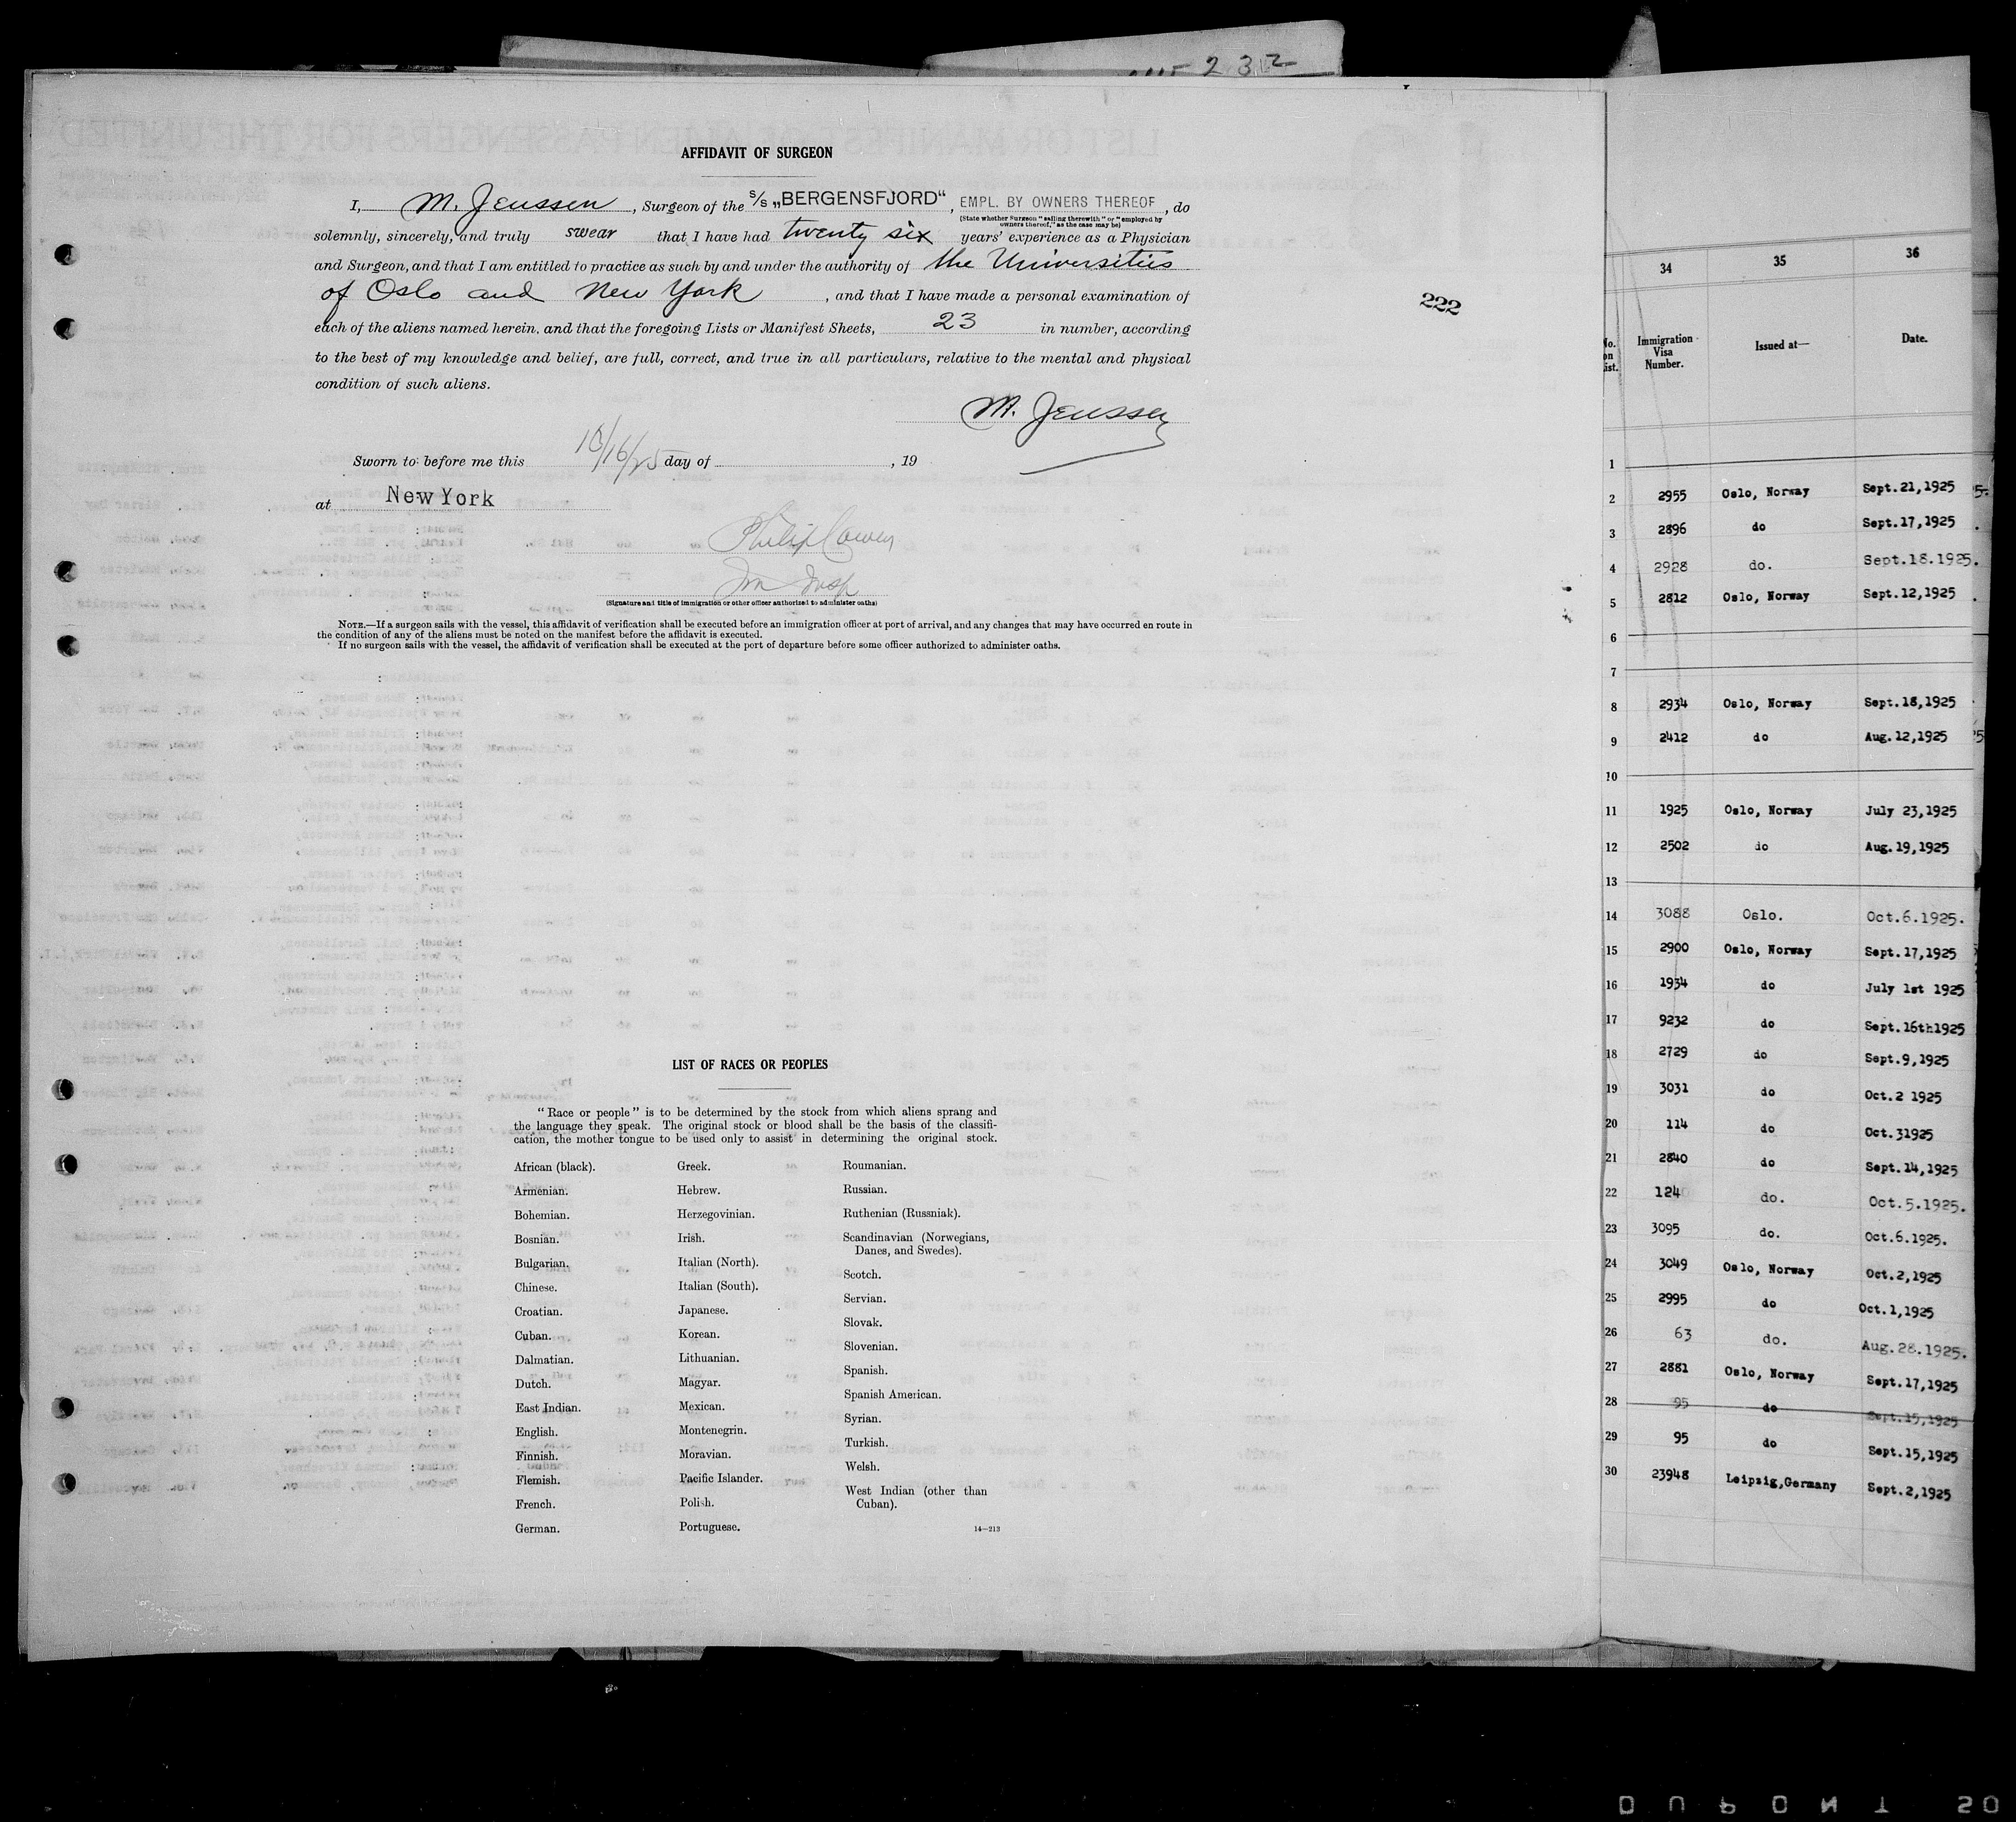 232
AFFIDAVIT OF SURGEON
I, M. Jenssen, Surgeon of the S/S „BERGENSFJORD“, EMPL. BY OWNERS THEREOF, do
(State whether Surgeon "sailing therewith" or "employed by
owners thereof," as the case may be)
solemnly, sincerely, and truly swear that I have had twenty six years' experience as a Physician
and Surgeon, and that I am entitled to practice as such by and under the authority of the Universities
of Oslo and New York, and that I have made a personal examination of
each of the aliens named herein, and that the foregoing Lists or Manifest Sheets, 23 in number, according
to the best of my knowledge and belief, are full, correct, and true in all particulars, relative to the mental and physical
condition of such aliens.
M. Jenssen
Sworn to before me this 10/16/25 day of , 19
at New York
Philip Cowen
Imm Insp
(Signature and title of immigration or other officer authorized to administer oaths)
NOTE.—If a surgeon sails with the vessel, this affidavit of verification shall be executed before an immigration officer at port of arrival, and any changes that may have occurred en route in
the condition of any of the aliens must be noted on the manifest before the affidavit is executed.
If no surgeon sails with the vessel, the affidavit of verification shall be executed at the port of departure before some officer authorized to administer oaths.
222
LIST OF RACES OR PEOPLES
"Race or people" is to be determined by the stock from which aliens sprang and
the language they speak. The original stock or blood shall be the basis of the classifi-
cation, the mother tongue to be used only to assist in determining the original stock.
African (black).
Armenian.
Bohemian.
Bosnian.
Bulgarian.
Chinese.
Croatian.
Cuban.
Dalmatian.
Dutch.
East Indian.
English.
Finnish.
Flemish.
French.
German.
Greek.
Hebrew.
Herzegovinian.
Irish.
Italian (North).
Italian (South).
Japanese.
Korean.
Lithuanian.
Magyar.
Mexican.
Montenegrin.
Moravian.
Pacific Islander.
Polish.
Portuguese.
Roumanian.
Russian.
Ruthenian (Russniak).
Scandinavian (Norwegians,
Danes, and Swedes).
Scotch.
Servian.
Slovak.
Slovenian.
Spanish.
Spanish American.
Syrian.
Turkish.
Welsh.
West Indian (other than
Cuban).
14—213
34 35 36
Immigration Visa Number. Issued at— Date.
1
2 2955 Oslo, Norway Sept.21,1925
3 2896 do Sept.17,1925
4 2928 do. Sept.18.1925.
5 2812 Oslo, Norway Sept.12,1925
6
7
8 2934 Oslo, Norway Sept.18,1925
9 2412 do Aug.12,1925
10
11 1925 Oslo, Norway July 23,1925
12 2502 do Aug.19,1925
13
14 3088 Oslo. Oct.6.1925.
15 2900 Oslo, Norway Sept.17,1925
16 1934 do July 1st 1925
17 9232 do Sept.16th1925
18 2729 do Sept.9,1925
19 3031 do Oct.2 1925
20 114 do Oct.31925
21 2840 do Sept.14,1925
22 124 do. Oct.5.1925.
23 3095 do. Oct.6.1925.
24 3049 Oslo, Norway Oct.2,1925
25 2995 do Oct.1,1925
26 63 do. Aug.28.1925.
27 2881 Oslo, Norway Sept.17,1925
28 95 do Sept.15,1925
29 95 do Sept.15,1925
30 23948 Leipzig,Germany Sept.2,1925
DUPONT 20